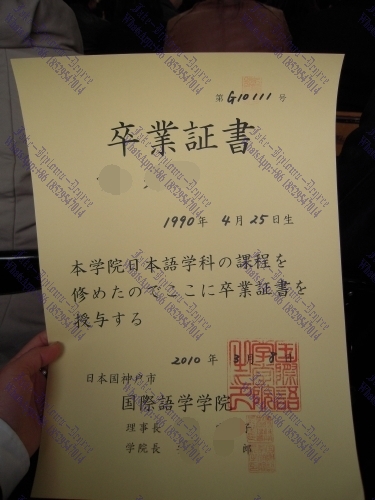 第G10111号
卒業証書
1990年 4月25日生
本学院日本語学科の課程を
修めたのでここに卒業証書を
授与する
2010年 3月 8日
日本国神戸市
国際語学学院
理事長 子
学院長 郎
国際語
学学院
之印
Fake-Diploma-Degree
WhatsApp:+86 18529547014